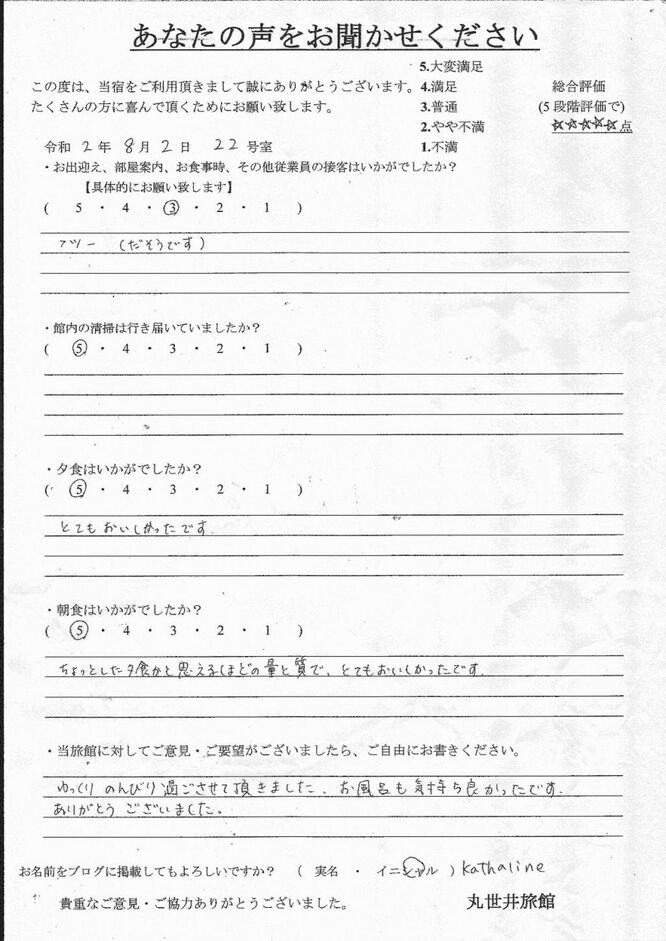 あなたの声をお聞かせください
5.大変満足
この度は、当宿をご利用頂きまして誠にありがとうございます。 4.満足 総合評価
たくさんの方に喜んで頂くためにお願い致します。 3.普通 (5段階評価で)
2.やや不満 ☆☆☆☆☆点
令和 2年 8月 2日 22号室 1.不満
・お出迎え、部屋案内、お食事時、その他従業員の接客はいかがでしたか?
【具体的にお願い致します】
( 5 ・ 4 ・ ③ ・ 2 ・ 1 )
フツー (だそうです)
・館内の清掃は行き届いていましたか?
( ⑤ ・ 4 ・ 3 ・ 2 ・ 1 )
・夕食はいかがでしたか?
( ⑤ ・ 4 ・ 3 ・ 2 ・ 1 )
とてもおいしかったです.
・朝食はいかがでしたか?
( ⑤ ・ 4 ・ 3 ・ 2 ・ 1 )
ちょっとした夕食かと思えるほどの量と質で、とてもおいしかったです.
・当旅館に対してご意見・ご要望がございましたら、ご自由にお書きください。
ゆっくり のんびり過ごさせて頂きました、お風呂も気持ち良かったです.
ありがとう ございました.
お名前をブログに掲載してもよろしいですか? ( 実名 ・ イニシャル ) kathaline
貴重なご意見・ご協力ありがとうございました。 丸世井旅館